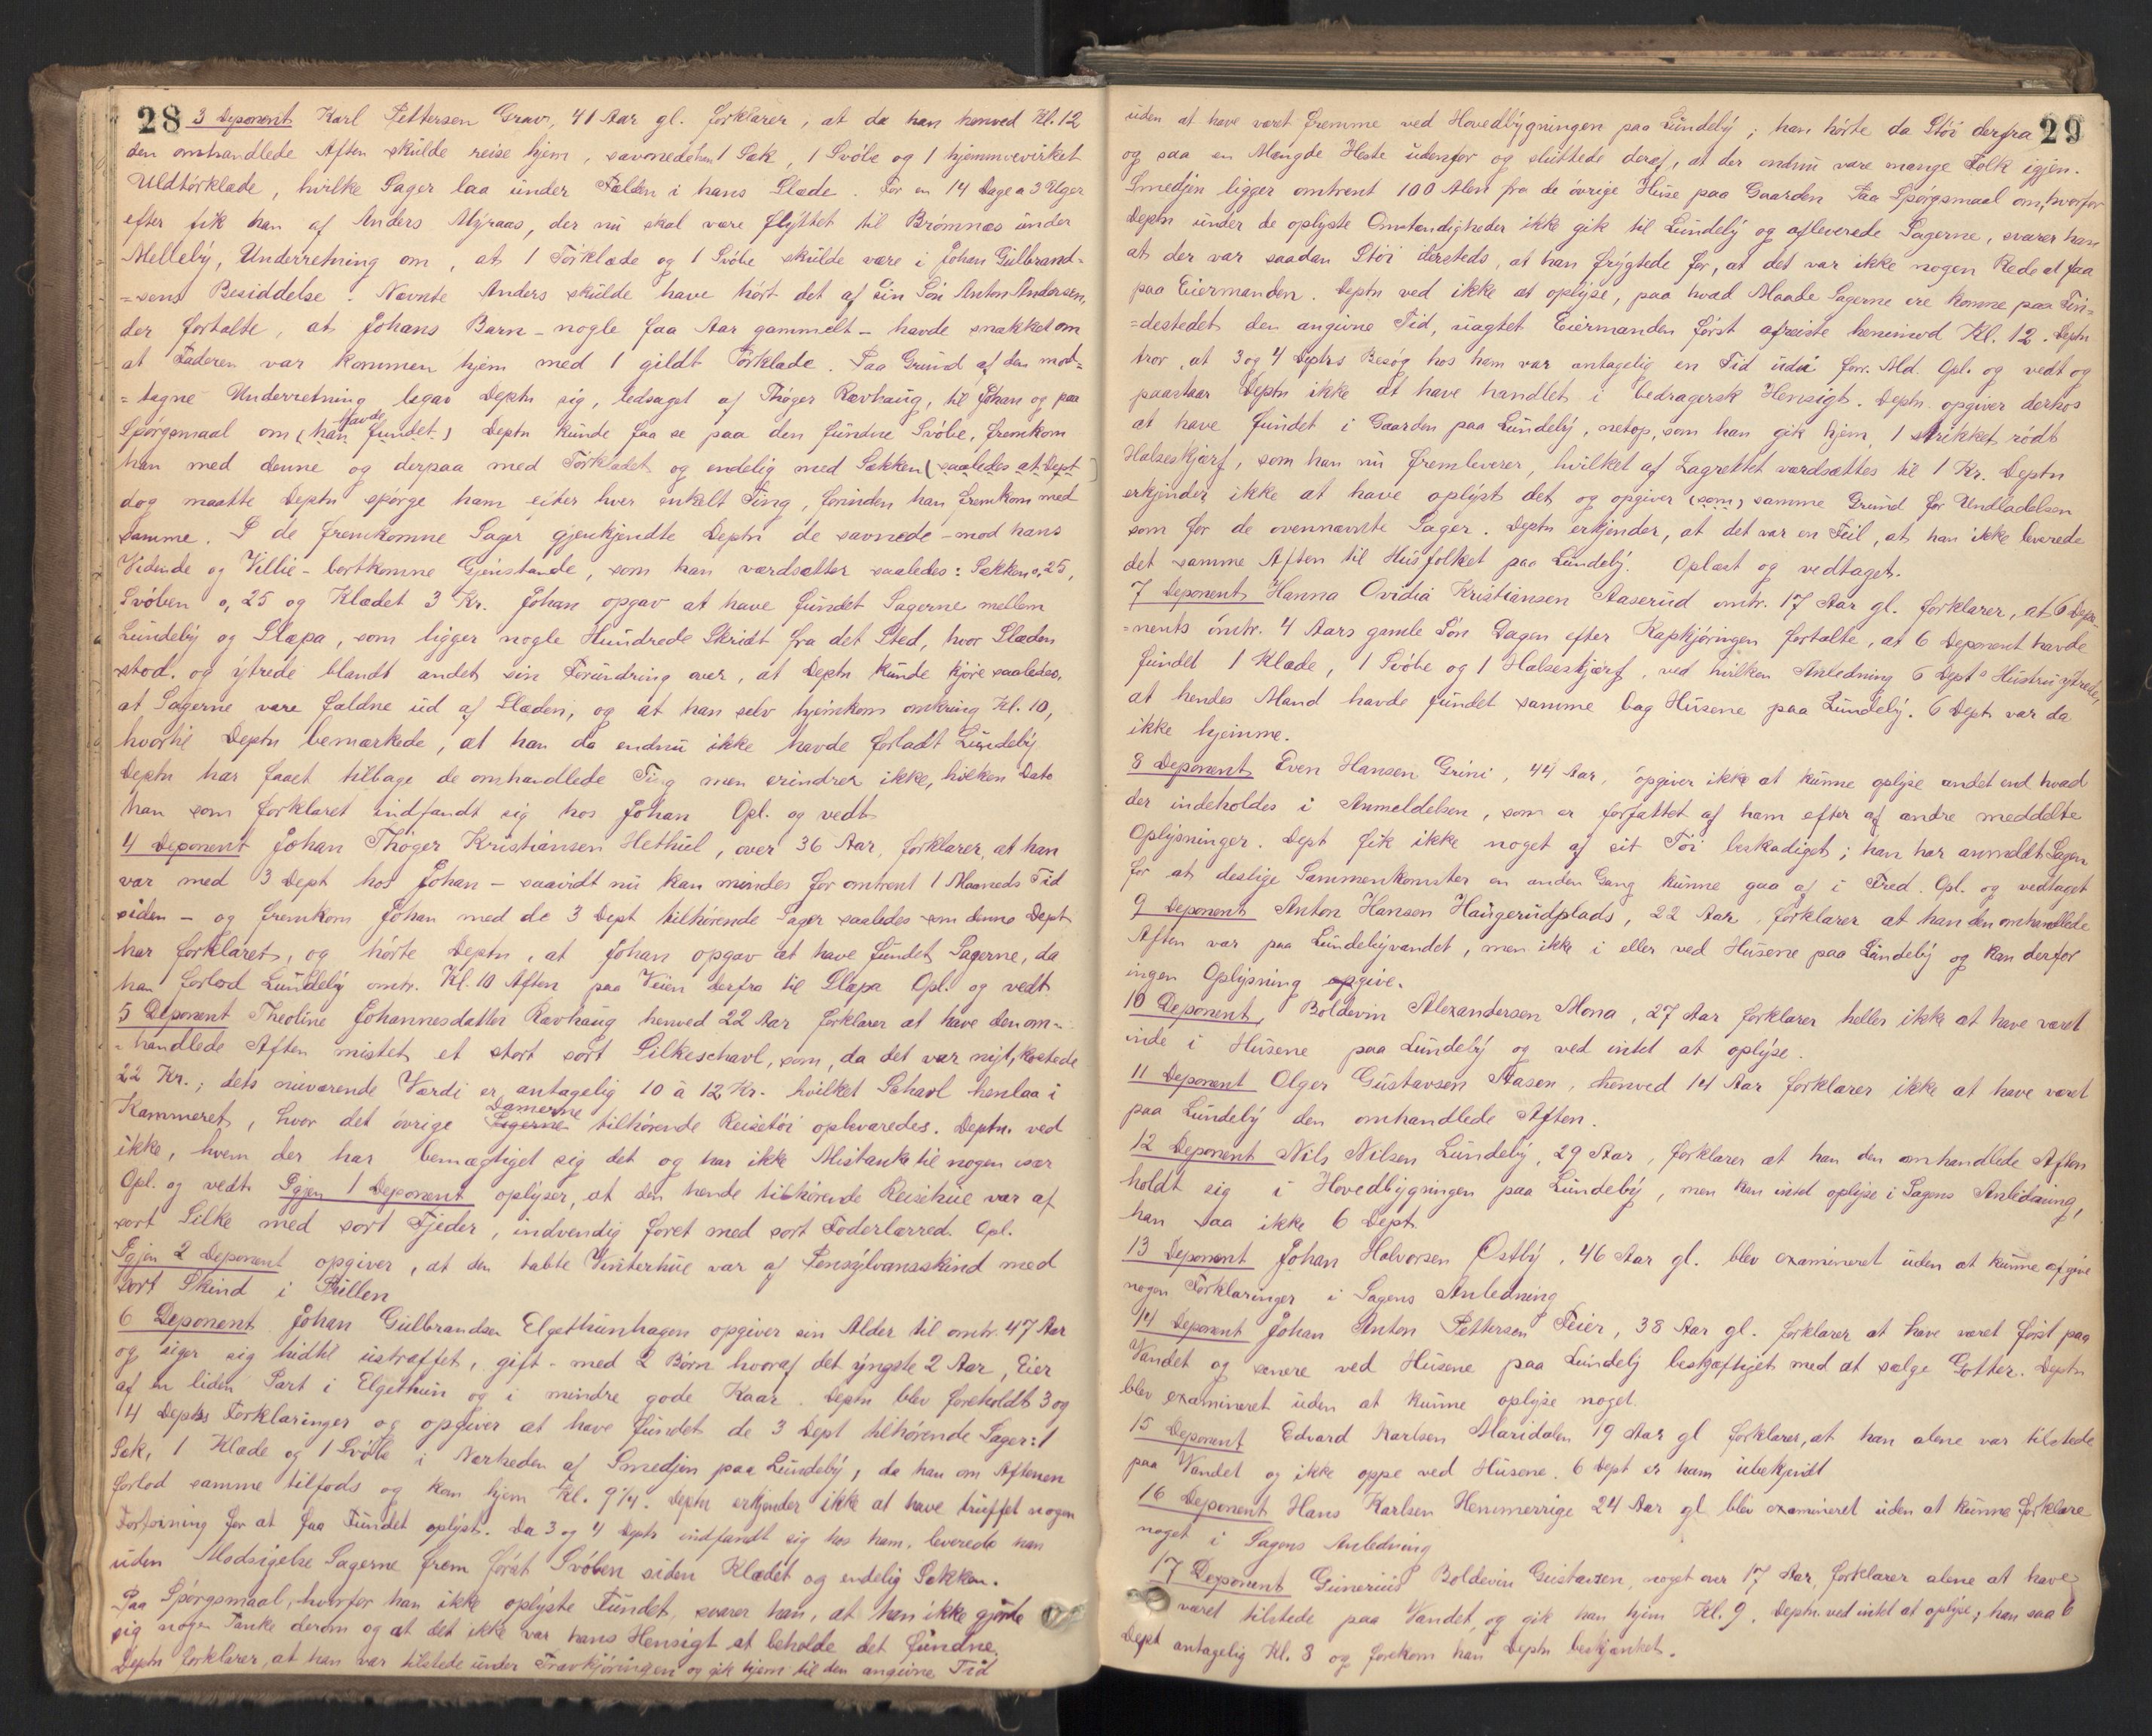 28
3 Deponent Karl Pettersen Grav, 41 Aar gl. forklarer, at da han henved Kl. 12
den omhandlede Aften skulde reise hjem, savnede han 1 Sæk, 1 Svøbe og 1 hjemmevirket
Uldtørklæde, hvilke Sager laa under Fælden i hans Slæde. For en 14 Dage a 3 Uger
efter fik han af Anders Myraas, der nu skal være flyttet til Brømnæs under
Melleby, Underretning om, at 1 Tørklæde og 1 Svøbe skulde være i Johan Gulbrand-
=sens Besiddelse. Nævnte Anders skulde have hørt det af sin Søn Anton Andersen,
der fortalte, at Johans Barn – nogle faa Aar gammelt – havde snakket om
at Faderen var kommen hjem med 1 gildt Tørklæde. Paa Grund af den mod=
=tagne Underretning begav Deptn sig, ledsaget af Thøger Ravhaug, til Johan og paa
Spørgsmaal om (han havde fundet) Deptn kunde faa se paa den fundne Svøbe, fremkom
han med denne og derpaa med Tørklædet og endelig med Sækken (saaledes at Dept)
dog maatte Deptn spørge ham efter hver enkelt Ting, forinden han fremkom med
samme. I de fremkomne Sager gjenkjendte Deptn de savnede – mod hans
Vidende og Villie – bortkomne Gjenstande, som han værdsætter saaledes: Sækken 0,25,
Svøben 0,25 og Klædet 3 Kr. Johan opgav at have fundet Sagerne mellem
Lundeby og Slæpa, som ligger nogle Hundrede Skridt fra det Sted, hvor Slæden
stod. og ytrede blandt andet sin Forundring over, at Deptn kunde kjøre saaledes,
at Sagerne vare faldne ud af Slæden, og at han selv hjemkom omkring Kl. 10,
hvortil Deptn bemærkede, at han da endnu ikke havde forladt Lundeby
Deptn har faaet tilbage de omhandlede Ting men erindrer ikke, hvilken Dato
han som forklaret indfandt sig hos Johan Opl. og vedt.
4 Deponent Johan Thøger Kristiansen Hethul, over 36 Aar, forklarer, at han
var med 3 Dept hos Johan – saavidt nu kan mindes for omtrent 1 Maaneds Tid
siden – og fremkom Johan med de 3 Dept tilhørende Sager saaledes som denne Dept
har forklaret, og hørte Deptn, at Johan opgav at have fundet Sagerne, da
han forlod Lundeby omtr. Kl. 10 Aften paa Veien derfra til Slæpa Opl. og vedt.
5 Deponent Theoline Johannesdatter Ravhaug henved 22 Aar forklarer at have den om=
=handlede Aften mistet et stort sort Silkeschavl, som, da det var nyt, kostede
22 Kr.; dets nuværende Værdi er antagelig 10 à 12 Kr. hvilket Schavl henlaa i
Kammeret, hvor det øvrige Damerne tilhørende Reisetøi opbevaredes. Deptn. ved
ikke, hvem der har bemægtiget sig det og har ikke Mistanke til nogen især
Opl. og vedt. Igjen 1 Deponent oplyser, at den hende tilhørende Reisehue var af
sort Silke med sort Fjeder, indvendig foret med sort Foderlærred. Opl.
Igjen 2 Deponent opgiver, at den tabte Vinterhue var af Pensylvansskind med
sort Skind i Pullen
6 Deponent Johan Gulbrandsen Elgethunhagen opgiver sin Alder til omtr. 47 Aar
og siger sig hidtil ustraffet, gift – med 2 Børn hvoraf det yngste 2 Aar, Eier
af en liden Part i Elgethun og i mindre gode Kaar. Deptn blev foreholdt 3 og
4 Depts Forklaringer og opgiver at have fundet de 3 Dept tilhørende Sager: 1
Sæk, 1 Klæde og 1 Svøbe i Nærheden af Smedjen paa Lundeby, da han om Aftenen
forlod samme tilfods og kom hjem Kl. 9¼. Deptn erkjender ikke at have truffet nogen
Forføining for at faa Fundet oplyst. Da 3 og 4 Dept indfandt sig hos ham, leverede han
uden Modsigelse Sagerne frem først Svøben siden Klædet og endelig Sækken.
Paa Spørgsmaal, hvorfor han ikke oplyste Fundet, svarer han, at han ikke gjorde
sig nogen Tanke derom og at det ikke var hans Hensigt at beholde det fundne.
Deptn forklarer, at han var tilstede under Travkjøringen og gik hjem til den angivne Tid
29
uden at have været fremme ved Hovedbygningen paa Lundeby; han hørte da Støi derfra
og saa en Mængde Heste udenfor og sluttede deraf, at der endnu vare mange Folk igjen.
Smedjen ligger omtrent 100 Alen fra de øvrige Huse paa Gaarden Paa Spørgsmaal om, hvorfor
Deptn under de oplyste Omstændigheder ikke gik til Lundeby og afleverede Sagerne, svarer han
at der var saadan Støi dersteds, at han frygtede for, at det var ikke nogen Rede at faa
paa Eiermanden. Deptn ved ikke at oplyse, paa hvad Maade Sagerne ere komne paa Fin=
=destedet den angivne Tid, uagtet Eiermanden først afreiste henimod Kl. 12. Deptn
tror, at 3 og 4 Deptrs Besøg hos ham var antagelig en Tid udi forr. Md. Opl. og vedt og
paastaar Deptn ikke at have handlet i bedragersk Hensigt. Deptn opgiver derhos
at have fundet i Gaarden paa Lundeby, netop, som han gik hjem, 1 strikket rødt
Halseskjærf, som han nu fremleverer, hvilket af Lagrettet værdsættes til 1 Kr. Deptn
erkjender ikke at have oplyst det og opgiver (som) samme Grund for Undladelsen
som for de ovennævnte Sager. Deptn erkjender, at det var en Feil, at han ikke leverede
det samme Aften til Husfolket paa Lundeby. Oplæst og vedtaget.
7 Deponent Hanna Ovidia Kristiansen Aaserud omtr. 17 Aar gl. forklarer, at 6 Depo
=nents omtr. 4 Aars gamle Søn Dagen efter Kapkjøringen fortalte, at 6 Deponent havde
fundet 1 Klæde, 1 Svøbe og 1 Halseskjærf, ved hvilken Anledning 6 Depts Hustru ytrede,
at hendes Mand havde fundet samme bag Husene paa Lundeby. 6 Dept. var da
ikke hjemme.
8 Deponent Even Hansen Grini, 44 Aar, opgiver ikke at kunne oplyse andet end hvad
der indeholdes i Anmeldelsen, som er forfattet af ham efter af andre meddelte
Oplysninger. Dept fik ikke noget af sit Tøi beskadiget; han har anmeldt Sagen
for at deslige Sammenkomster en anden Gang kunne gaa af i Fred. Opl. og vedtaget
9 Deponent Anton Hansen Haugerudplads, 22 Aar forklarer at han den omhandlede
Aften var paa Lundebyvandet, men ikke i eller ved Husene paa Lundeby og kan derfor
ingen Oplysning opgive.
10 Deponent, Boldevin Alexandersen Mona, 27 Aar forklarer heller ikke at have været
inde i Husene paa Lundeby og ved intet at oplyse.
11 Deponent Olger Gustavsen Aasen, henved 14 Aar forklarer ikke at have været
paa Lundeby den omhandlede Aften.
12 Deponent Nils Nilsen Lundeby, 29 Aar, forklarer at han den omhandlede Aften
holdt sig i Hovedbygningen paa Lundeby, men kan intet oplyse i Sagens Anledning,
han saa ikke 6 Dept
13 Deponent Johan Halvorsen Østby, 46 Aar gl. blev examineret uden at kunne afgive
nogen Forklaringer i Sagens Anledning
14 Deponent Johan Anton Pettersen Feier, 38 Aar gl. forklarer at have været først paa
Vandet og senere ved Husene paa Lundeby beskjæftiget med at sælge Gotter. Deptn
blev examineret uden at kunne oplyse noget.
15 Deponent Edvard Karlsen Maridalen 19 Aar gl forklarer, at han alene var tilstede
paa Vandet og ikke oppe ved Husene. 6 Dept er ham ubekjendt
16 Deponent Hans Karlsen Hemmerrige 24 Aar gl blev examineret uden at kunne forklare
noget i Sagens Anledning
17 Deponent Gunerius Boldevin Gustavsen, noget over 17 Aar, forklarer alene at have
været tilstede paa Vandet, og gik han hjem Kl. 9. Deptn. ved intet at oplyse; han saa 6
Dept antagelig Kl. 3 og forekom han Deptn beskjænket.